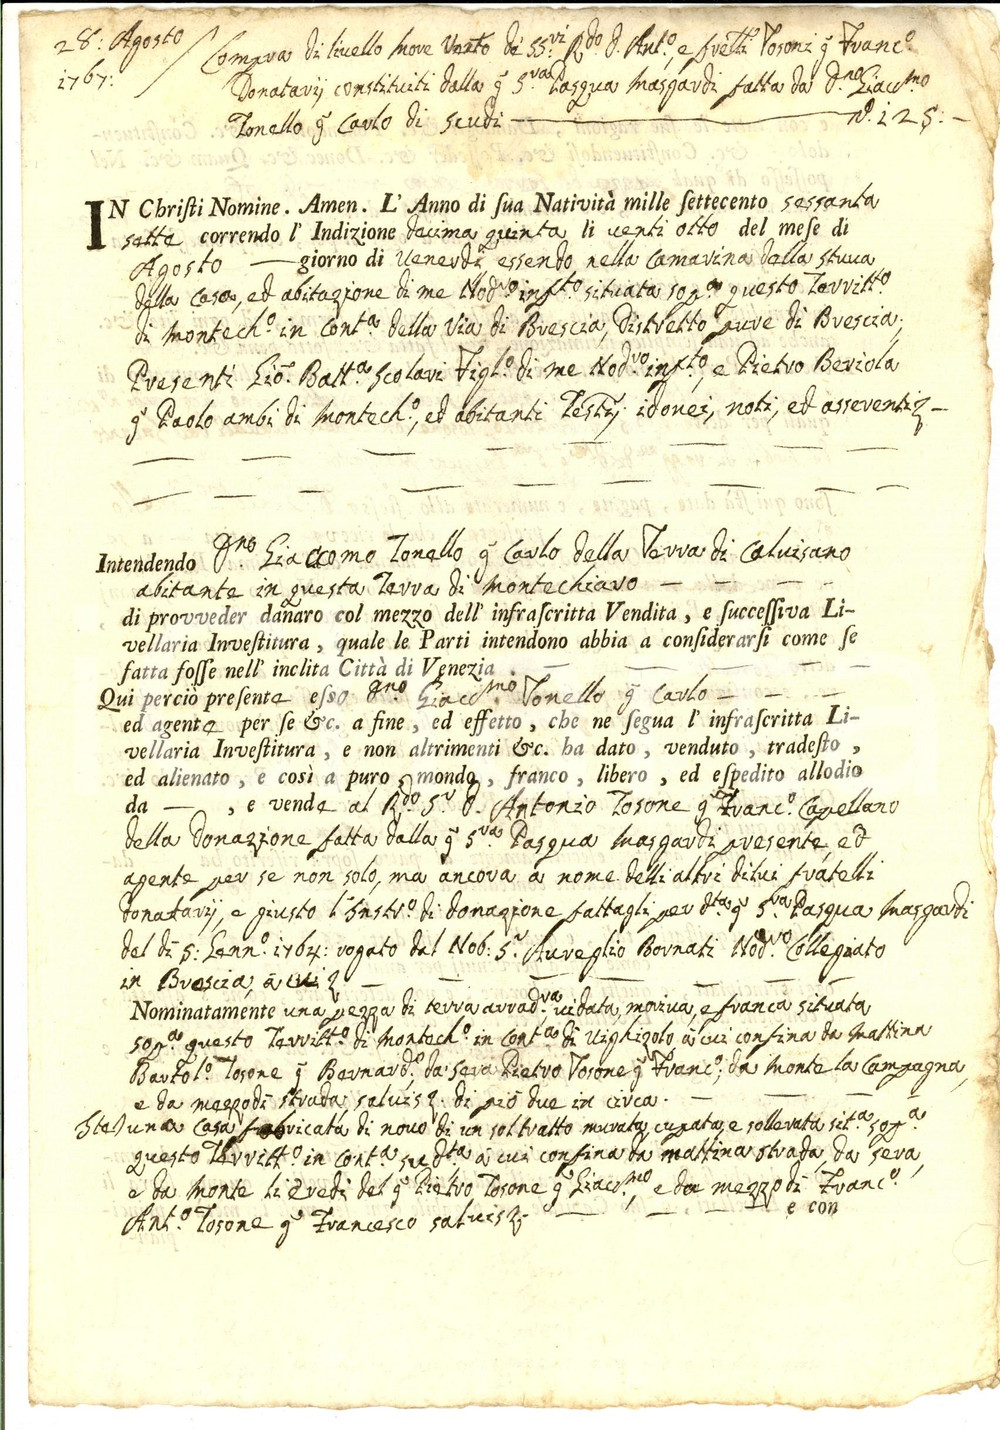 28: Agosto
1767:
Compra di livello more Veneto de SS.ri R.do d. Ant.o, e frelli Tosoni q Franc.o
Donatarij constituiti dalla q S.ra Pasqua Masgardi fatta da D.no Giac.mo
Tonello q Carlo di scudi — N.o 125: –
IN Christi Nomine. Amen. L' Anno di sua Natività mille settecento sessanta
sette correndo l' Indizione decima quinta li venti otto del mese di
Agosto — giorno di Venerdì essendo nella camarina della stuua
della casa, ed abitazione di me Nod.ro inf.to situata sop.a questo Territt.o
di Montech.o in cont.a della Via di Brescia, Distretto pure di Brescia;
Presenti Gio. Batt.a Scolari Figl.o di me Nod.ro inf.to, e Pietro Beriola
q Paolo ambi di Montech.o, ed abitanti Testij idonei, noti, ed asserenti &
Intendendo D.no Giacomo Tonello q Carlo della Terra di Caluisano
abitante in questa Terra di Montechiaro — — — —
di provveder danaro col mezzo dell' infrascritta Vendita, e successiva Li-
vellaria Investitura, quale le Parti intendono abbia a considerarsi come se
fatta fosse nell' inclita Città di Venezia. — — — —
Qui perciò presente esso D.no Giac.mo Tonello q Carlo — — —
ed agente per se &c. a fine, ed effetto, che ne segua l' infrascritta Li-
vellaria Investitura, e non altrimenti &c. ha dato, venduto, tradesto,
ed alienato, e così a puro, mondo, franco, libero, ed espedito allodio
da — , e vende al R.do S.r d. Antonio Tosone q Franc.o Capellano
della Donazione fatta dalla q S.ra Pasqua Masgardi presente, ed
agente per se non solo, ma ancora a nome delli altri dilui fratelli
Donatarij, e giusto l'Instr.o di donazione fattagli per d.ta q S.ra Pasqua Masgardi
del dì 5: Genn.o 1764: rogato dal Nob: S.r Aureglio Bornati Nod.ro Collegiato
in Brescia, à cui & — — — —
Nominatamente una pezza di terra arrad.va, vidata, moriva, e franca situata
sop.a questo Territt.o di Montech.o in cont.a di Vighizolo à cui confina da mattina
Bartol.o Tosone q Bernard.o, da sera Pietro Tosone q Franc.o, da monte la Campagna,
e da mezzodì strada saluis &. di piò due in circa. — — — —
Ite una casa fabricata di novo di un sol tratto murata, cupata, e sollerata sit.a sop.a
questo Territt.o in cont.a sud.ta à cui confina da mattina strada, da sera,
e da monte li Eredi del q Pietro Tosone q Giac.mo, e da mezzodì Franc.o
Ant.o Tosone q Francesco saluis & — — — —
e con